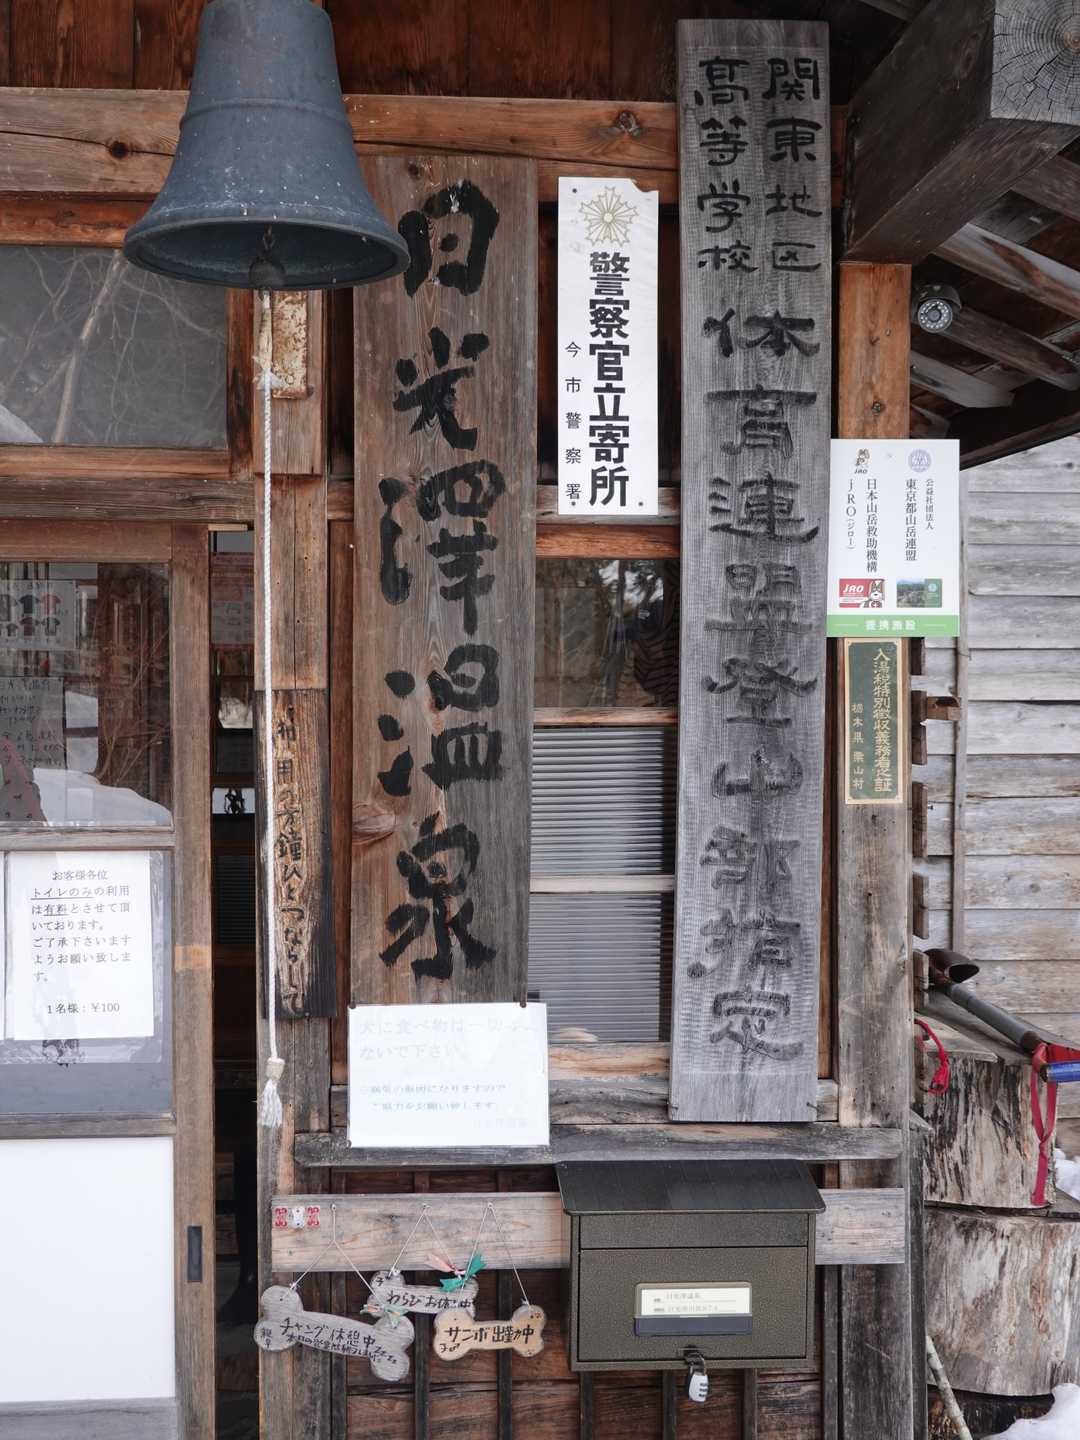 日光澤温泉
警察官立寄所
今市警察署
関東地区
高等学校
体育連盟登山部指定
公益社団法人
東京都山岳連盟
日本山岳救助機構
jRO(ジロー)
JRO
提携施設
入湯税特別徴収義務者之証
栃木県 栗山村
御用の方鐘ひとつならして
お客様各位
トイレのみの利用
は有料とさせて頂
いております。
ご了承下さいます
ようお願い致しま
す。
1名様：¥100
犬に食べ物は一切
ないで下さい。
ご協力をお願い致します
チャング休憩中
わらび お休中
サンボ出勤中
日光澤温泉